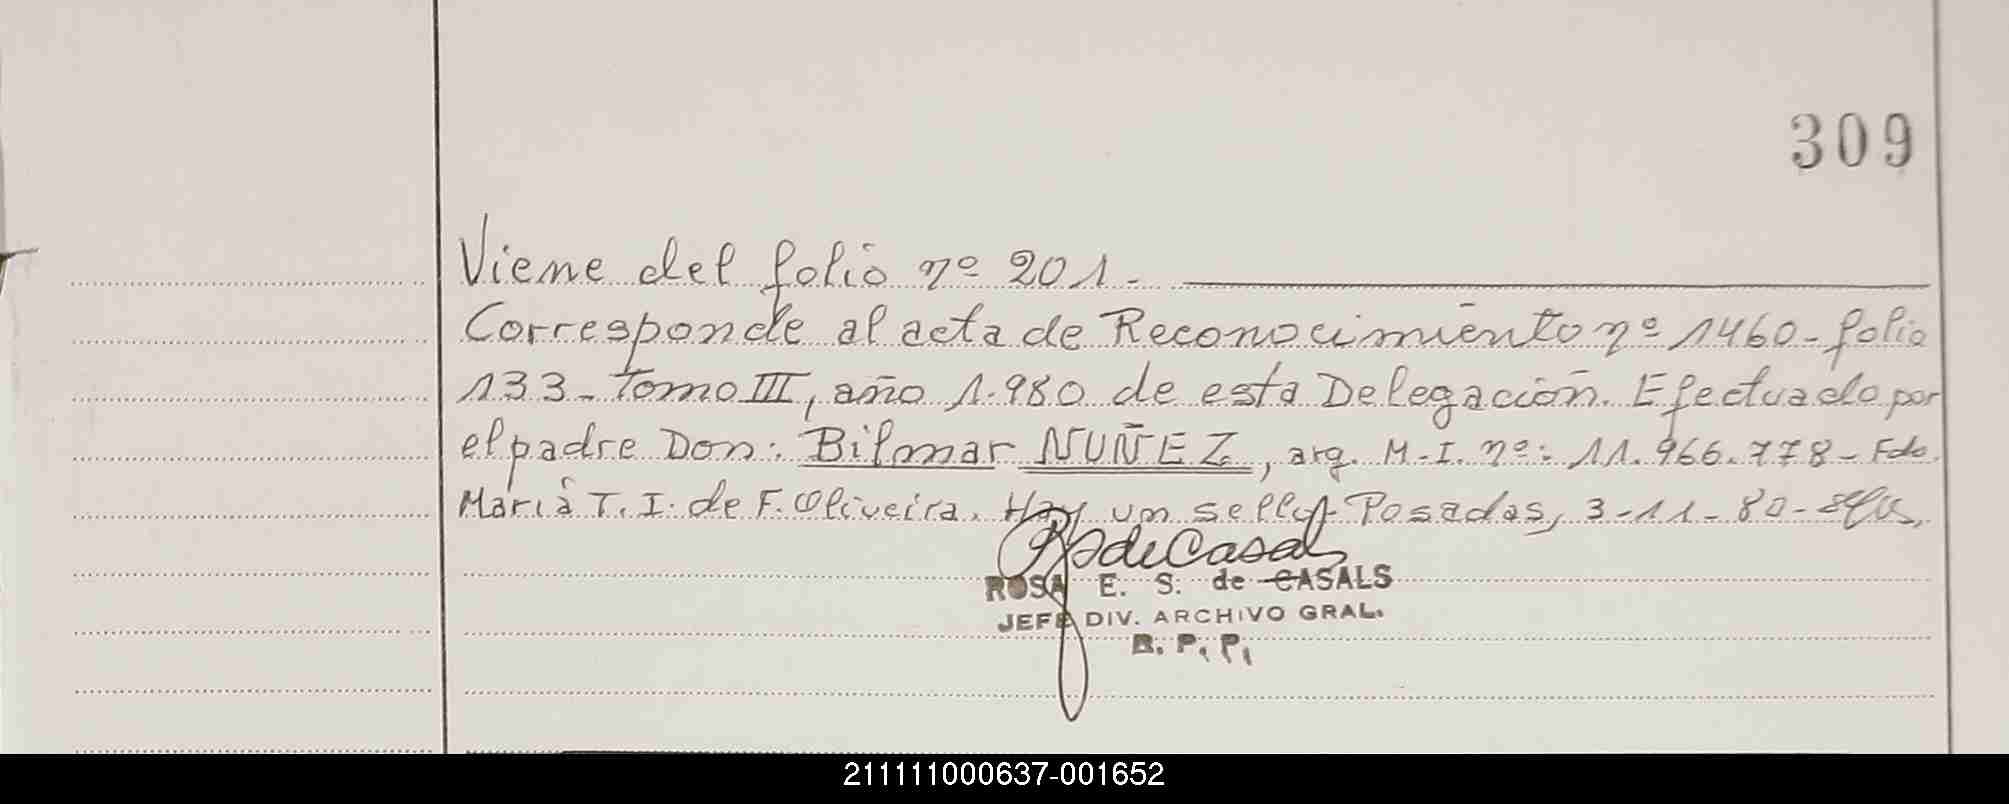 309
Viene del folio nº 201.-
Corresponde al acta de Reconocimiento nº 1460- folio
133- Tomo III, año 1.980 de esta Delegación. Efectuado por
el padre Don: Bilmar NUÑEZ, arg. M.I. nº: 11.966.778- Fdo.
Maria T. I. de F. Oliveira. Hay un sello- Posadas, 3-11-80-
RdeCasals
ROSA E. S. de CASALS
JEFE DIV. ARCHIVO GRAL.
R. P. P.
211111000637-001652